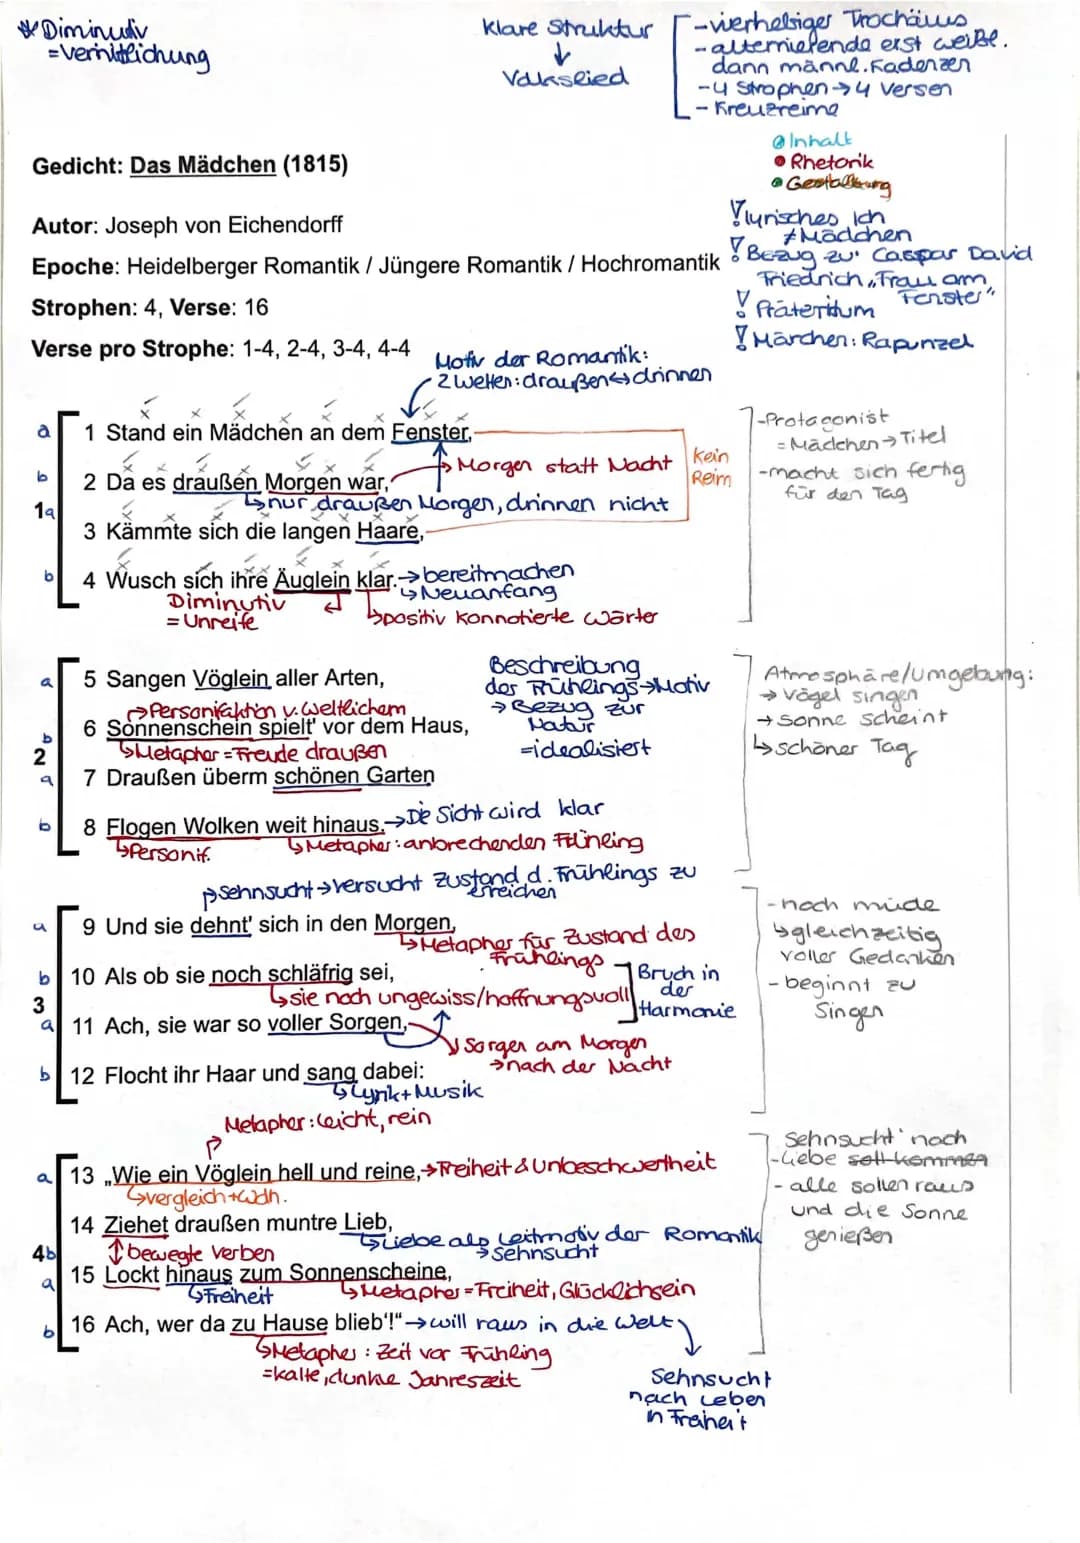 * Diminutiv
= Verniedlichung
Klare Struktur
↓
Volkslied
- vierhebiger Trochäus
- alternierende erst weibl.
dann männl. Kadenzen
- 4 Strophen → 4 Versen
- Kreuzreime
Inhalt
Rhetorik
Gestaltung
Gedicht: Das Mädchen (1815)
Autor: Joseph von Eichendorff
Epoche: Heidelberger Romantik / Jüngere Romantik / Hochromantik
Strophen: 4, Verse: 16
Verse pro Strophe: 1-4, 2-4, 3-4, 4-4
! lyrisches Ich
≠ Mädchen
! Bezug zu: Caspar David
Friedrich „Frau am
Fenster"
! Präteritum
! Märchen: Rapunzel
Motiv der Romantik:
2 Welten: draußen ↔ drinnen
a
1 Stand ein Mädchen an dem Fenster,
→ Morgen statt Nacht
Kein
Reim
b
2 Da es draußen Morgen war,
↳ nur draußen Morgen, drinnen nicht
1a
3 Kämmte sich die langen Haare,
b
4 Wusch sich ihre Äuglein klar. → bereitmachen
↳ Neuanfang
Diminutiv
= Unreife
↳ positiv konnotierte Wörter
- Protagonist
= Mädchen → Titel
- macht sich fertig
für den Tag
a
5 Sangen Vöglein aller Arten,
Beschreibung
des Frühlings → Motiv
→ Bezug zur
Natur
= idealisiert
→ Personifaktion v. weltlichem
b
6 Sonnenschein spielt' vor dem Haus,
↳ Metapher = Freude draußen
2
a
7 Draußen überm schönen Garten
b
8 Flogen Wolken weit hinaus. → Die Sicht wird klar
↳ Personif.
↳ Metapher: anbrechenden Frühling
Atmosphäre/Umgebung:
→ Vögel singen
→ Sonne scheint
↳ schöner Tag
Sehnsucht → versucht Zustand d. Frühlings zu
erreichen
a
9 Und sie dehnt' sich in den Morgen,
↳ Metapher für Zustand des
Frühlings
b
10 Als ob sie noch schläfrig sei,
↳ sie noch ungewiss/hoffnungsvoll
Bruch in
der
Harmonie
3
a
11 Ach, sie war so voller Sorgen,
Sorgen am Morgen
→ nach der Nacht
b
12 Flocht ihr Haar und sang dabei:
↳ Lyrik + Musik
- noch müde
↳ gleichzeitig
voller Gedanken
- beginnt zu
Singen
Metapher: leicht, rein
a
13 „Wie ein Vöglein hell und reine, → Freiheit & Unbeschwertheit
↳ Vergleich + Wdh.
14 Ziehet draußen muntre Lieb,
↳ Liebe als Leitmotiv der Romantik
→ Sehnsucht
4b
↕ bewegte Verben
a
15 Lockt hinaus zum Sonnenscheine,
↳ Freiheit
↳ Metapher = Freiheit, Glücklichsein
b
16 Ach, wer da zu Hause blieb'!" → will raus in die Welt
↳ Metapher: Zeit vor Frühling
= kalte, dunkle Jahreszeit
Sehnsucht
nach Leben
in Freiheit
Sehnsucht nach
- Liebe soll kommen
- alle sollen raus
und die Sonne
genießen